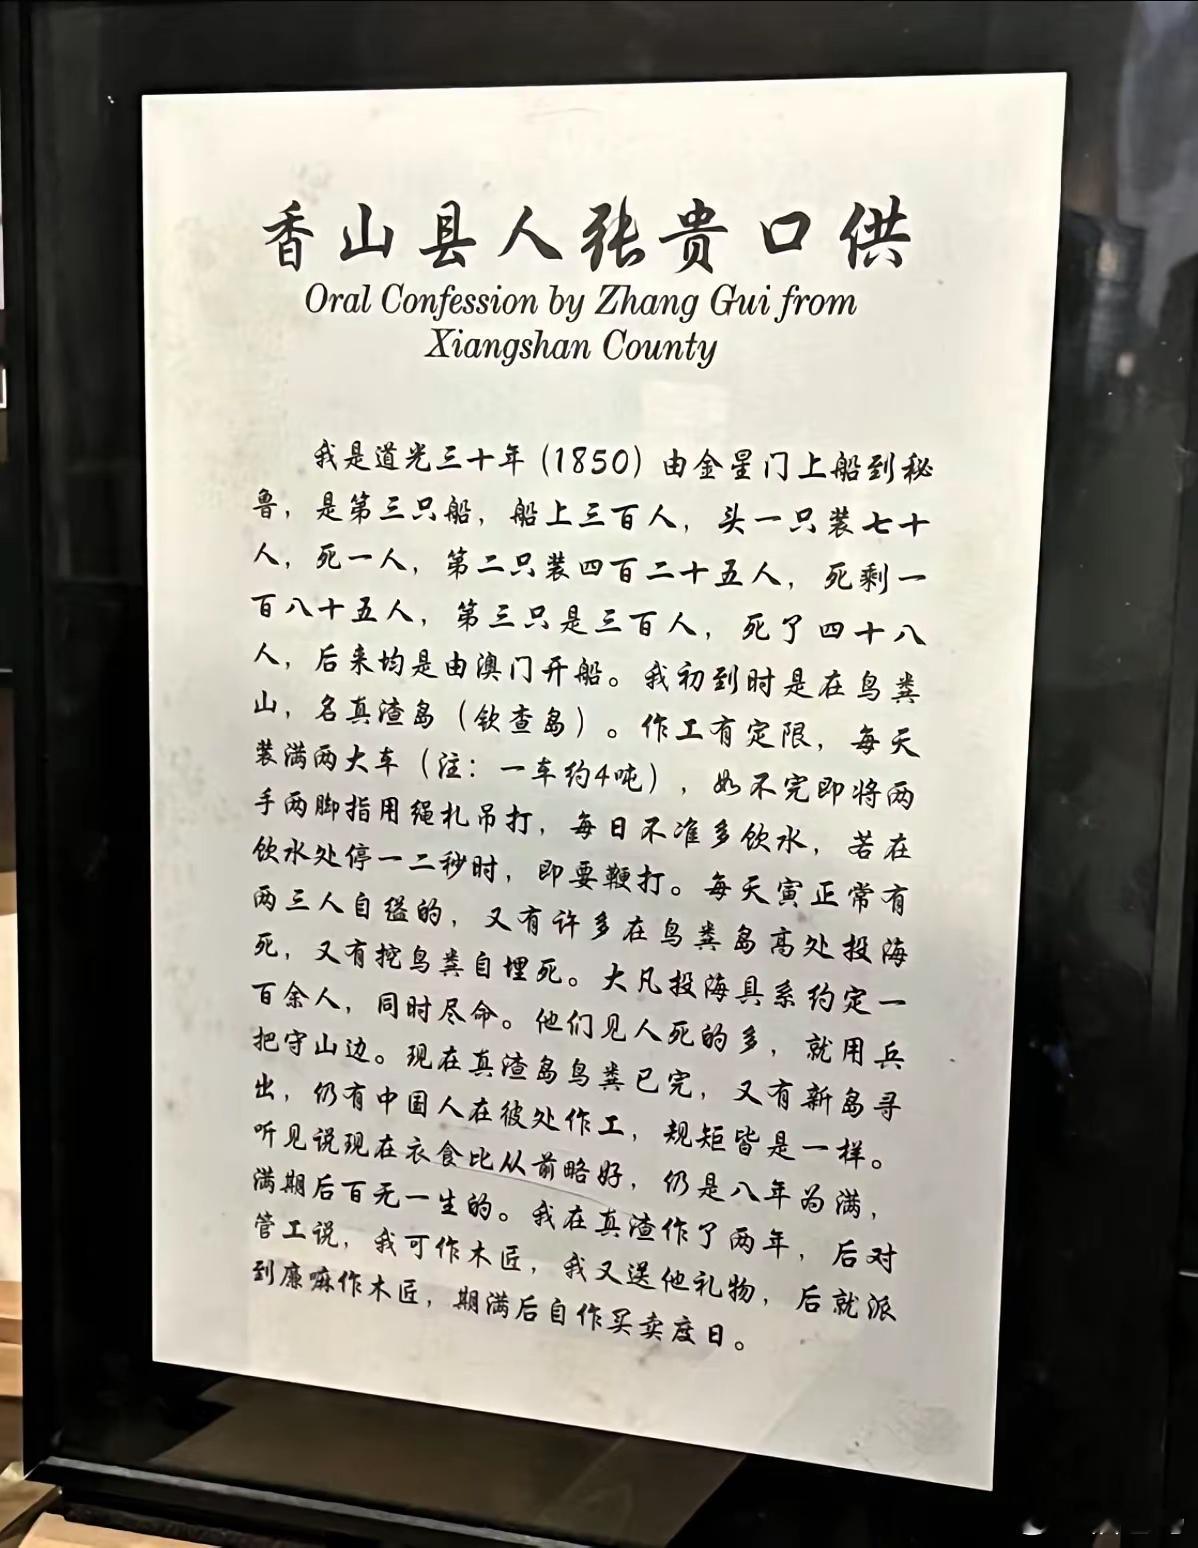 香山县人张贵口供
Oral Confession by Zhang Gui from
Xiangshan County
我是道光三十年（1850）由金星门上船到秘
鲁，是第三只船，船上三百人，头一只装七十
人，死一人，第二只装四百二十五人，死剩一
百八十五人，第三只是三百人，死了四十八
人，后来均是由澳门开船。我初到时是在鸟粪
山，名真渣岛（钦查岛）。作工有定限，每天
装满两大车（注：一车约4吨），如不完即将两
手两脚指用绳扎吊打，每日不准多饮水，若在
饮水处停一二秒时，即要鞭打。每天寅正常有
两三人自缢的，又有许多在鸟粪岛高处投海
死，又有挖鸟粪自埋死。大凡投海具系约定一
百余人，同时尽命。他们见人死的多，就用兵
把守山边。现在真渣岛鸟粪已完，又有新岛寻
出，仍有中国人在彼处作工，规矩皆是一样。
听见说现在衣食比从前略好，仍是八年为满，
满期后百无一生的。我在真渣作了两年，后对
管工说，我可作木匠，我又送他礼物，后就派
到廉嘛作木匠，期满后自作买卖度日。